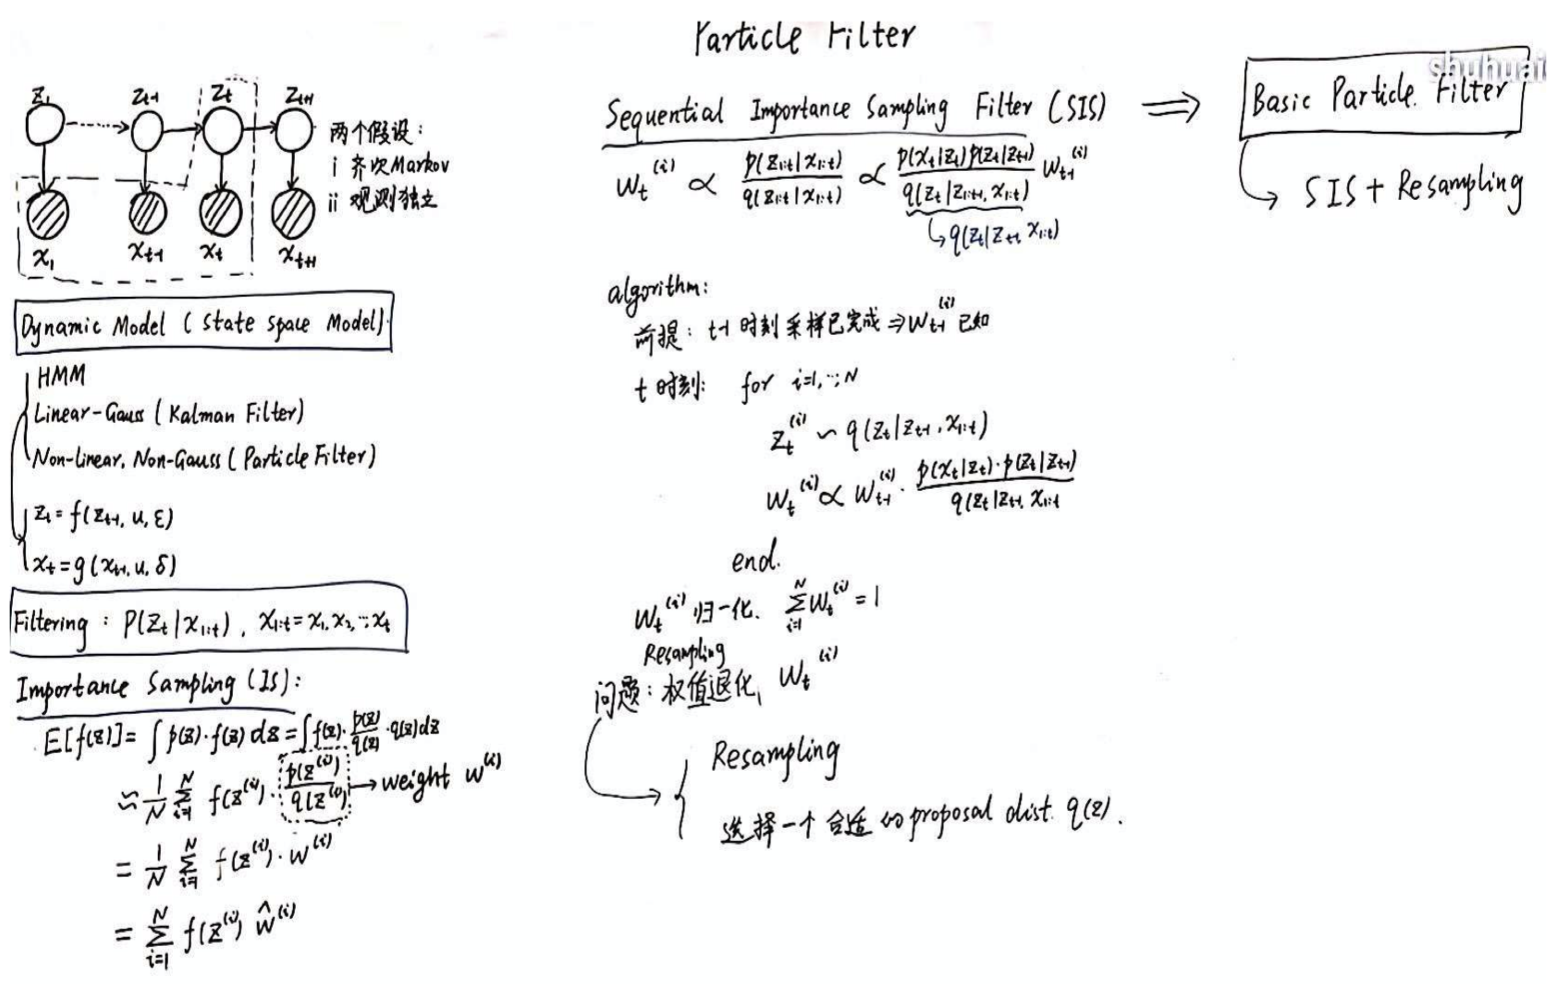 Particle Filter
shuhuai
z₁ z_{t-1} z_t z_{t+1}
x₁ x_{t-1} x_t x_{t+1}
两个假设：
i 齐次Markov
ii 观测独立
Dynamic Model (State Space Model)
HMM
Linear-Gauss (Kalman Filter)
Non-Linear, Non-Gauss (Particle Filter)
z_t = f(z_{t-1}, u, ε)
x_t = g(x_{t-1}, u, δ)
Filtering : P(z_t|x_{1:t}), x_{1:t} = x₁, x₂, ..., x_t
Importance Sampling (IS):
E[f(z)] = ∫ p(z)·f(z) dz = ∫ f(z)· p(z)/q(z) ·q(z)dz
≈ 1/N Σ_{i=1}^N f(z^{(i)})· p(z^{(i)})/q(z^{(i)}) → weight w^{(i)}
= 1/N Σ_{i=1}^N f(z^{(i)})·w^{(i)}
= Σ_{i=1}^N f(z^{(i)}) ŵ^{(i)}
Sequential Importance Sampling Filter (SIS) ⇒
w_t^{(i)} ∝ p(z_{1:t}|x_{1:t})/q(z_{1:t}|x_{1:t}) ∝ p(x_t|z_t)p(z_t|z_{t-1})/q(z_t|z_{1:t-1}, x_{1:t}) w_{t-1}^{(i)}
↳ q(z_t|z_{t-1}, x_{1:t})
algorithm:
前提：t-1 时刻采样已完成 ⇒ w_{t-1}^{(i)} 已知
t 时刻: for i=1, ..., N
z_t^{(i)} ~ q(z_t|z_{t-1}, x_{1:t})
w_t^{(i)} ∝ w_{t-1}^{(i)} · p(x_t|z_t)·p(z_t|z_{t-1})/q(z_t|z_{t-1}, x_{1:t}
end.
w_t^{(i)} 归一化. Σ_{i=1}^N w_t^{(i)} = 1
Resampling
问题：权值退化, w_t^{(i)}
Resampling
选择一个合适的proposal dist. q(z).
Basic Particle Filter
SIS + Resampling